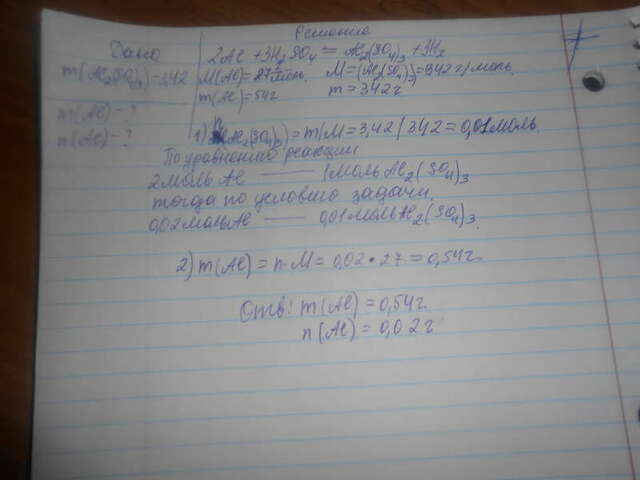 Решение
Дано
2Al + 3H2SO4 = Al2(SO4)3 + 3H2
m(Al2(SO4)3) = 3,42
M(Al) = 27 г/моль. M=(Al2(SO4)3)=342 г/моль.
m(Al)=54г m=342г
m(Al) - ?
n(Al) - ?
1) n(Al2(SO4)3) = m/M = 3,42/342 = 0,01 моль.
По уравнению реакции
2 моль Al —— 1 моль Al2(SO4)3
тогда по условию задачи.
0,02 моль Al —— 0,01 моль Al2(SO4)3.
2) m(Al) = n·M = 0,02 • 27 = 0,54г.
Отв: m(Al) = 0,54г.
n(Al) = 0,02 г